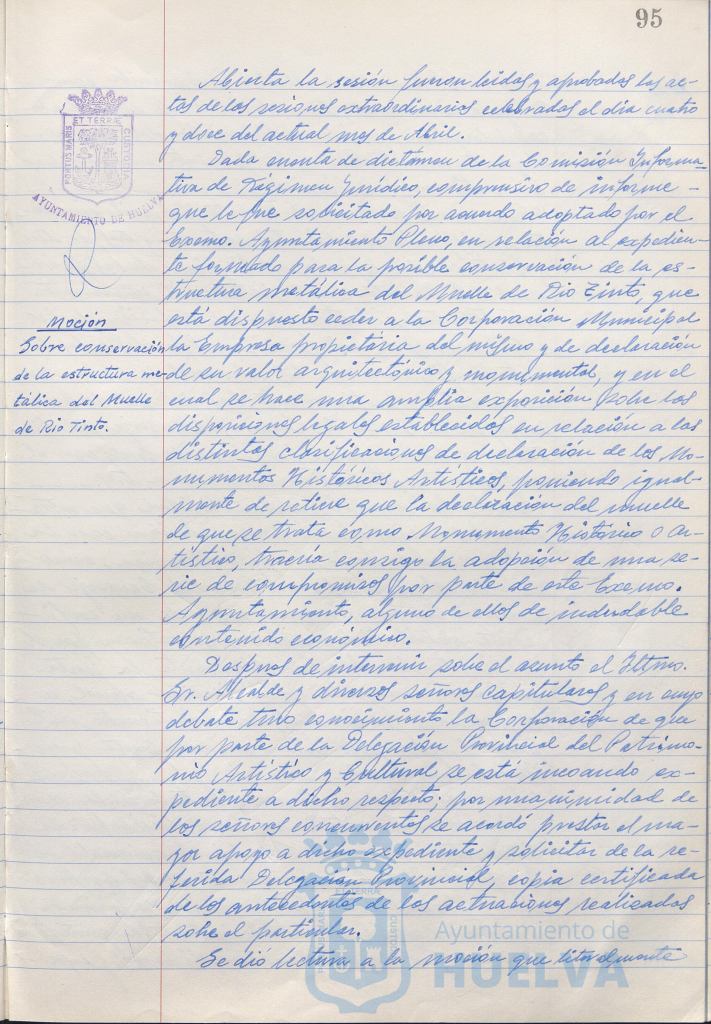 95
Abierta la sesión fueron leidas y aprobadas las ac-
tas de las sesiones extraordinarias celebradas el día cuatro
y doce del actual mes de Abril.
Dada cuenta de dictámen de la Comisión Informa-
tiva de Régimen Jurídico, comprensivo de informe
que le fue solicitado por acuerdo adoptado por el
Excmo. Ayuntamiento Pleno, en relación al expedien-
te formado para la posible conservación de la es-
tructura metálica del Muelle de Rio Tinto, que
está dispuesto ceder a la Corporación Municipal
la Empresa propietaria del mismo y de declaración
de su valor arquitectónico y monumental, y en el
cual se hace una amplia exposición sobre las
disposiciones legales establecidas en relación a las
distintas clasificaciones de declaración de los Mo-
numentos Históricos Artísticos, poniendo igual-
mente de relieve que la declaración del muelle
de que se trata como Monumento Histórico o Ar-
tístico, traería consigo la adopción de una se-
rie de compromisos por parte de este Excmo.
Ayuntamiento, alguno de ellos de indudable
contenido económico.
Después de intervenir sobre el asunto el Iltmo.
Sr. Alcalde y diversos señores capitulares y en cuyo
debate tuvo conocimiento la Corporación de que
por parte de la Delegación Provincial del Patrimo-
nio Artístico y Cultural se está incoando ex-
pediente a dicho respecto; por unanimidad de
los señores concurrentes se acordó prestar el ma-
yor apoyo a dicho expediente y solicitar de la re-
ferida Delegación Provincial, copia certificada
de los antecedentes de las actuaciones realizadas
sobre el particular.
Se dió lectura a la moción que literalmente
PORTUS MARIS ET TERRAE CUSTODIA
AYUNTAMIENTO DE HUELVA
Moción
Sobre conservación
de la estructura me-
tálica del Muelle
de Rio Tinto.
Ayuntamiento de
HUELVA